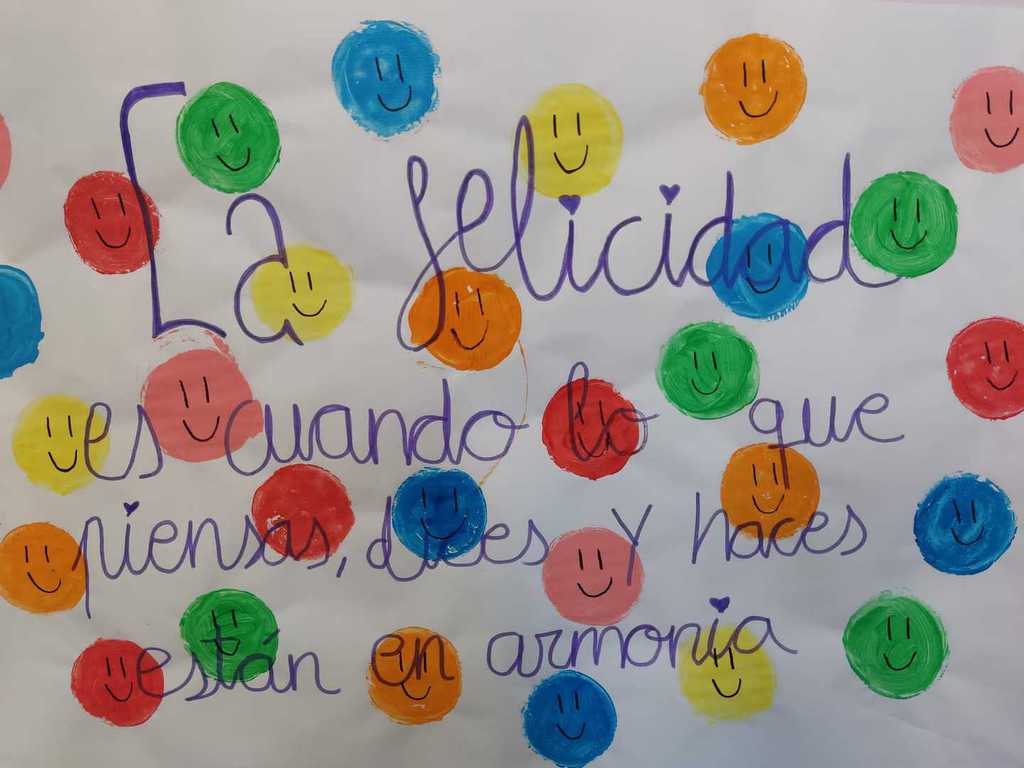 La felicidad
es cuando lo que
piensas, dices y haces
están en armonia